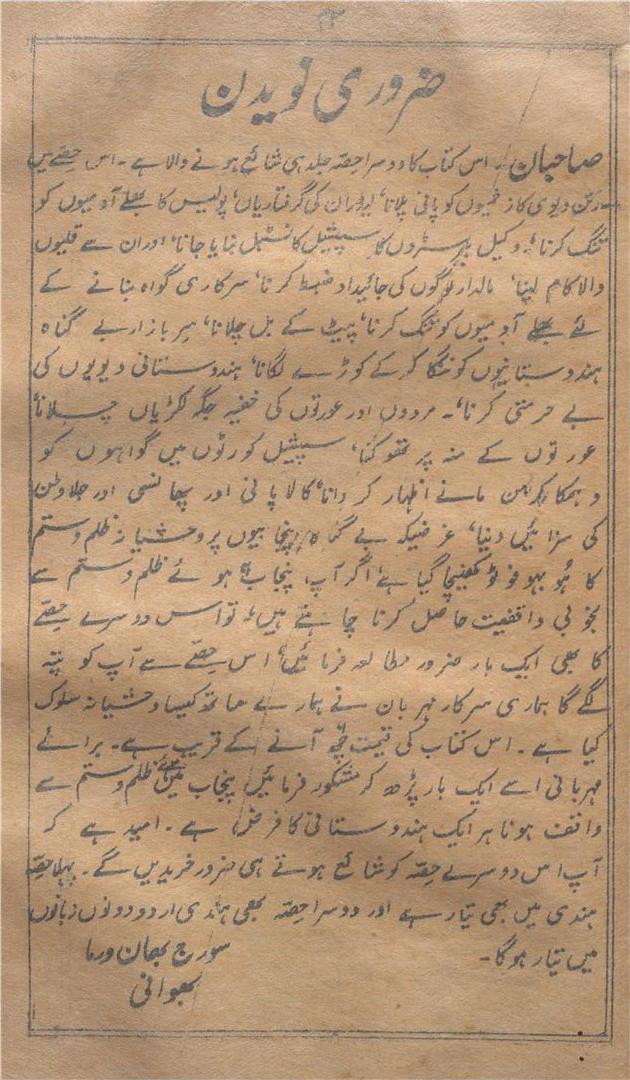 ۲۲
ضروری نویدن
صاحبان! اس کتاب کا دوسرا حصّہ جلد ہی شائع ہونے والا ہے۔ اس حصّے میں
رتن دیوی کا زخمیوں کو پانی پلانا‘ لیڈران کی گرفتاریاں‘ پولیس کا بھلے آدمیوں کو
تنگ کرنا‘ وکیل بیرسٹروں کا سپیشل کانسٹبل بنایا جانا‘ اور ان سے قلیوں
والا کام لینا‘ مالدار لوگوں کی جائیداد ضبط کرنا‘ سرکاری گواہ بنانے کے
لئے بھلے آدمیوں کو تنگ کرنا‘ پیٹ کے بل چلانا‘ سر بازار بے گناہ
ہندوستانیوں کو ننگا کر کے کوڑے لگانا‘ ہندوستانی دیویوں کی
بے حرمتی کرنا‘۔ مردوں اور عورتوں کی خفیہ جگہ لکڑیاں چلانا‘
عورتوں کے منہ پر تھوکنا‘ سپیشل کورٹوں میں گواہوں کو
دھمکا کر من مانے اظہار کروانا‘ کالا پانی اور پھانسی اور جلاوطن
کی سزائیں دینا‘ غرضیکہ بے گناہ پنجابیوں پر وحشیانہ ظلم و ستم
کا ہُو بہو فوٹو کھینچا گیا ہے‘ اگر آپ، پنجاب پر ہوئے ظلم و ستم سے
بخوبی واقفیت حاصل کرنا چاہتے ہیں‘ تو اس دوسرے حصّے
کا بھی ایک بار ضرور مطالعہ فرمائیں‘ اس حصّے سے آپ کو پتہ
لگے گا ہماری سرکار مہربان نے ہمارے ساتھ کیسا وحشیانہ سلوک
کیا ہے۔ اس کتاب کی قیمت چھ آنے کے قریب ہے۔ برائے
مہربانی اسے ایک بار پڑھ کر مشکور فرمائیں پنجاب میں ہوئے ظلم و ستم سے
واقف ہونا ہر ایک ہندوستانی کا فرض ہے۔ امید ہے کہ
آپ اس دوسرے حصّہ کو شائع ہوتے ہی ضرور خریدیں گے۔ پہلا حصّہ
ہندی میں بھی تیار ہے اور دوسرا حصّہ بھی ہندی اردو دونوں زبانوں
میں تیار ہوگا۔
سورج بھان ورما
بھوانی